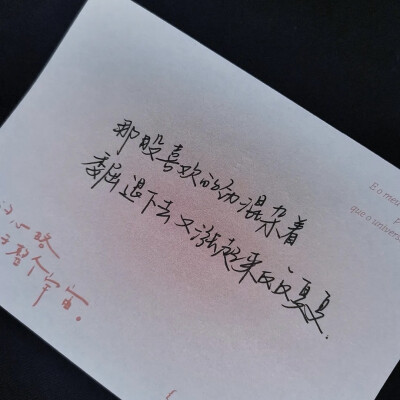 那股喜欢的劲混杂着
委屈退下去又涨起来反反复复.
E o meu
que o univers
心略
于整个
宇宙。